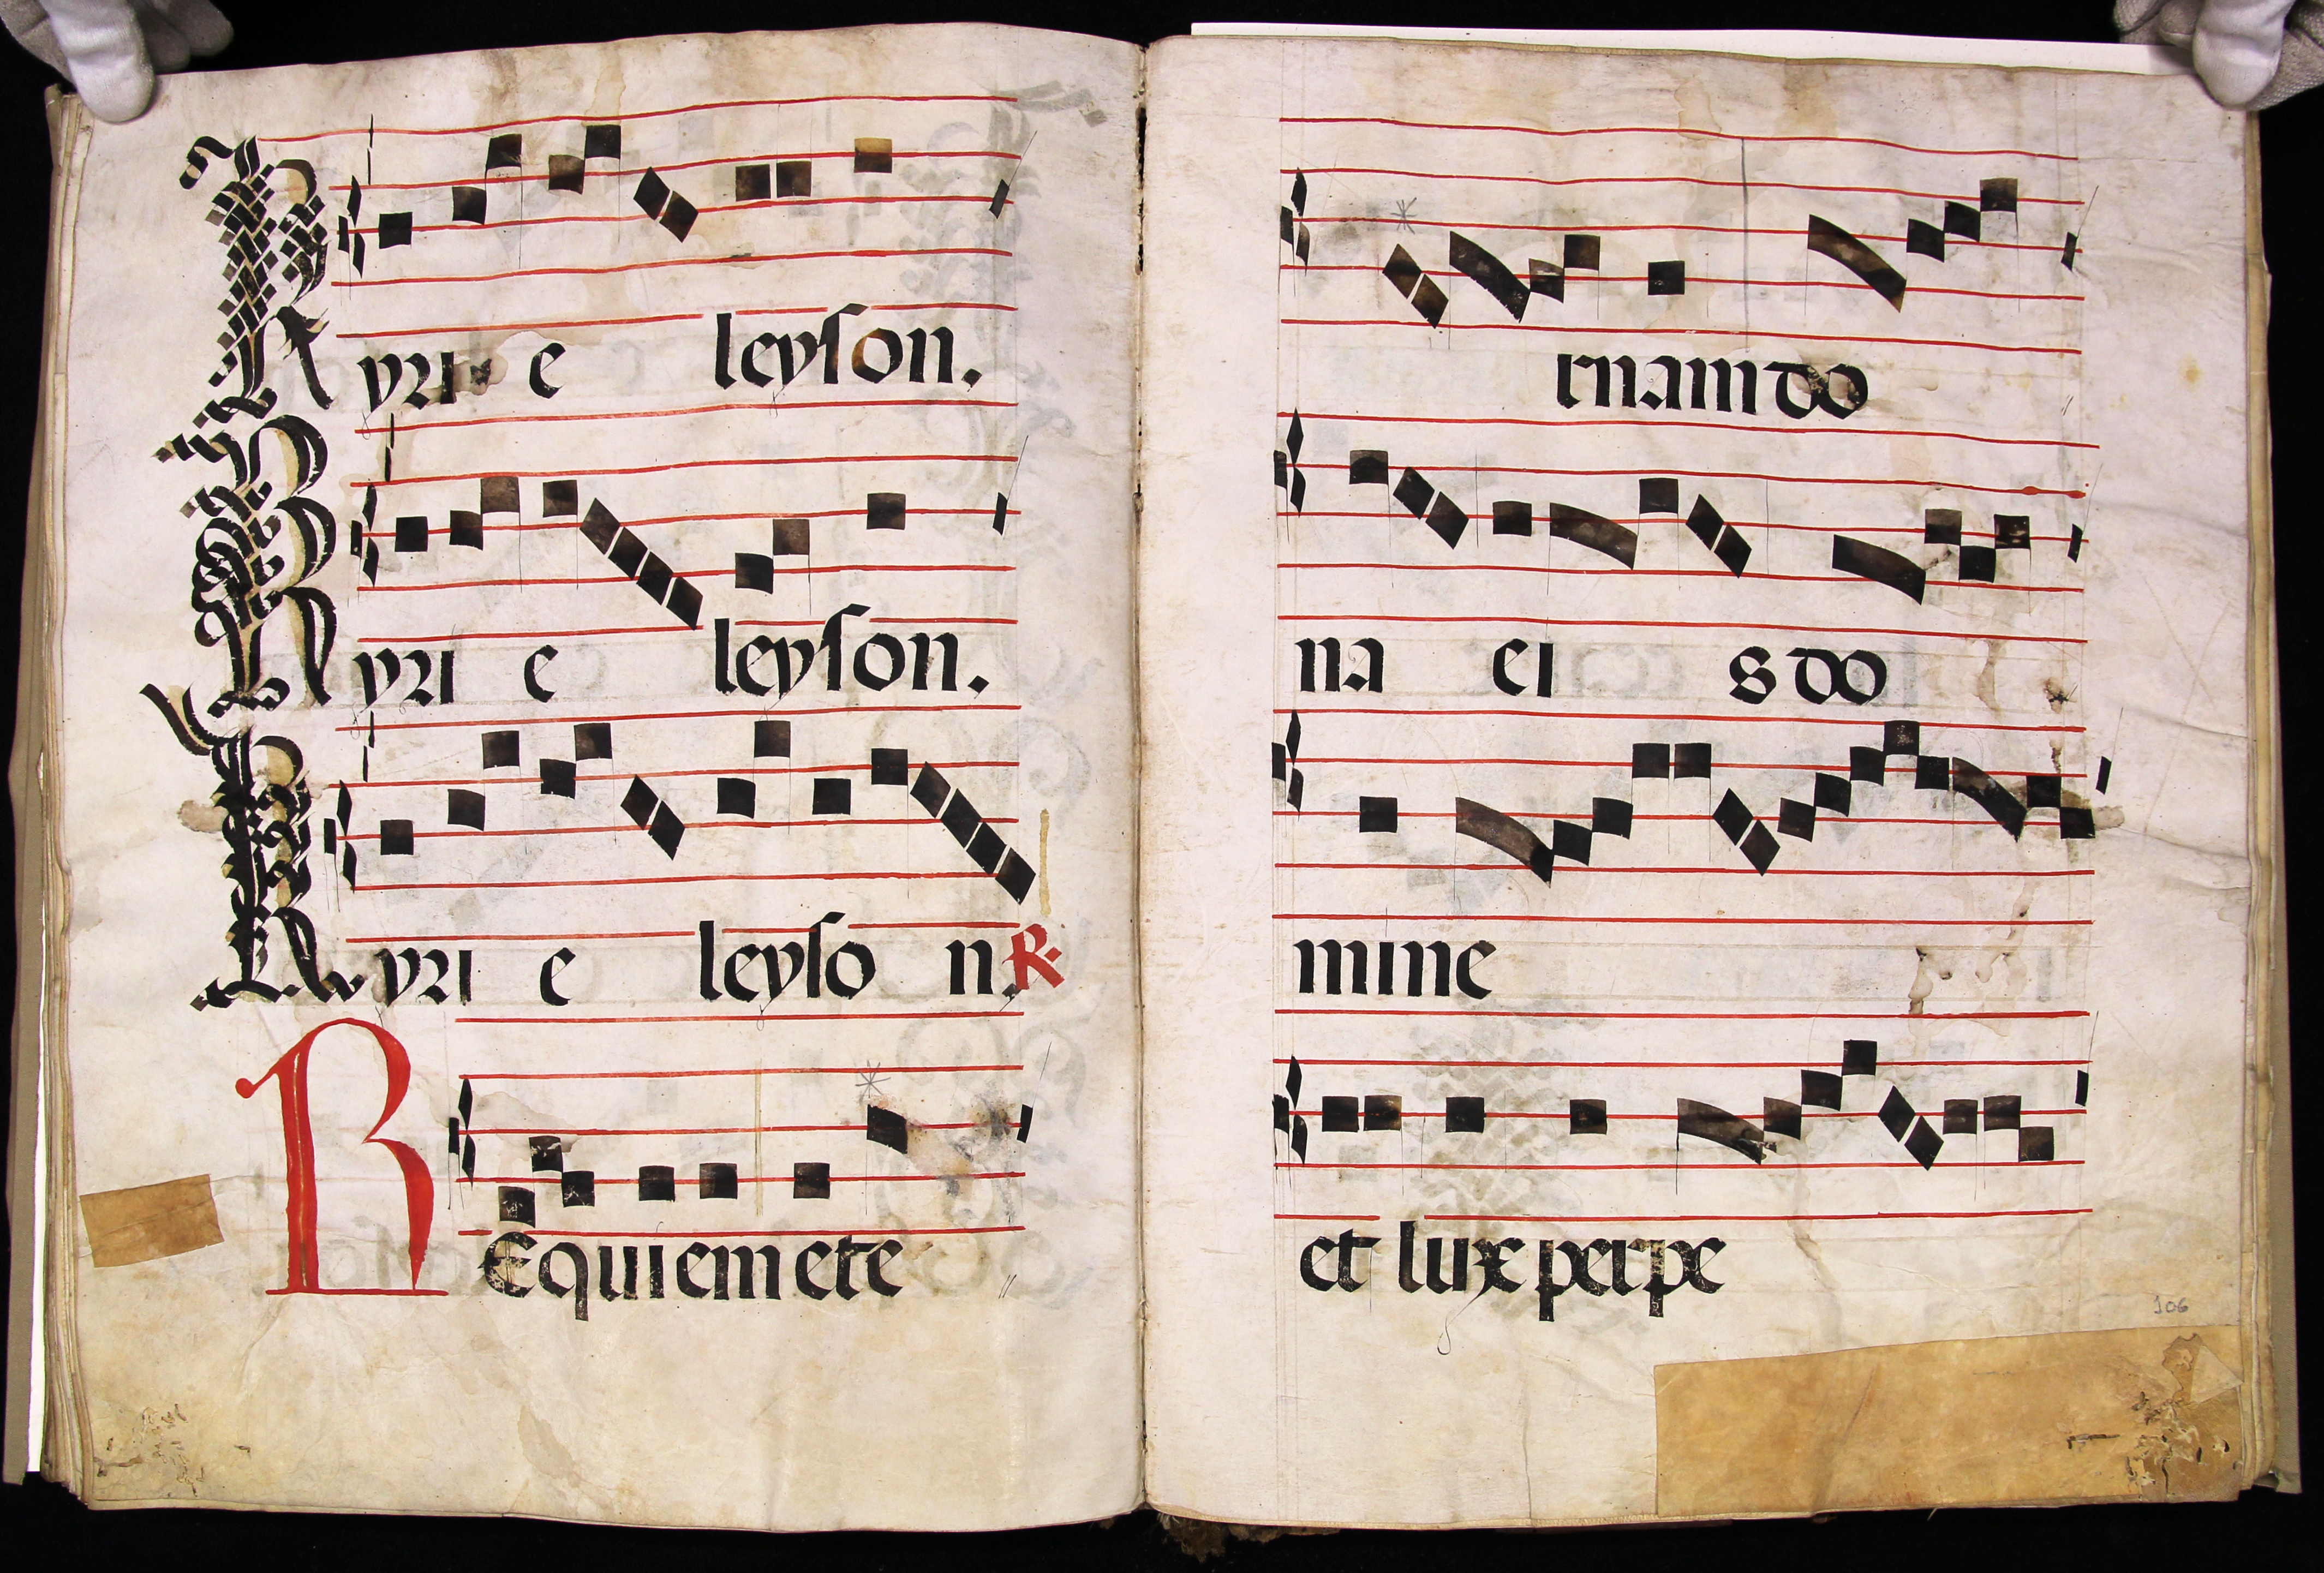 Kyri e leyson.
Kyri e leyson.
Kyri e leyso n. R.
REquiem ete
rnam do
na ei s do
mine
et lux perpe
106